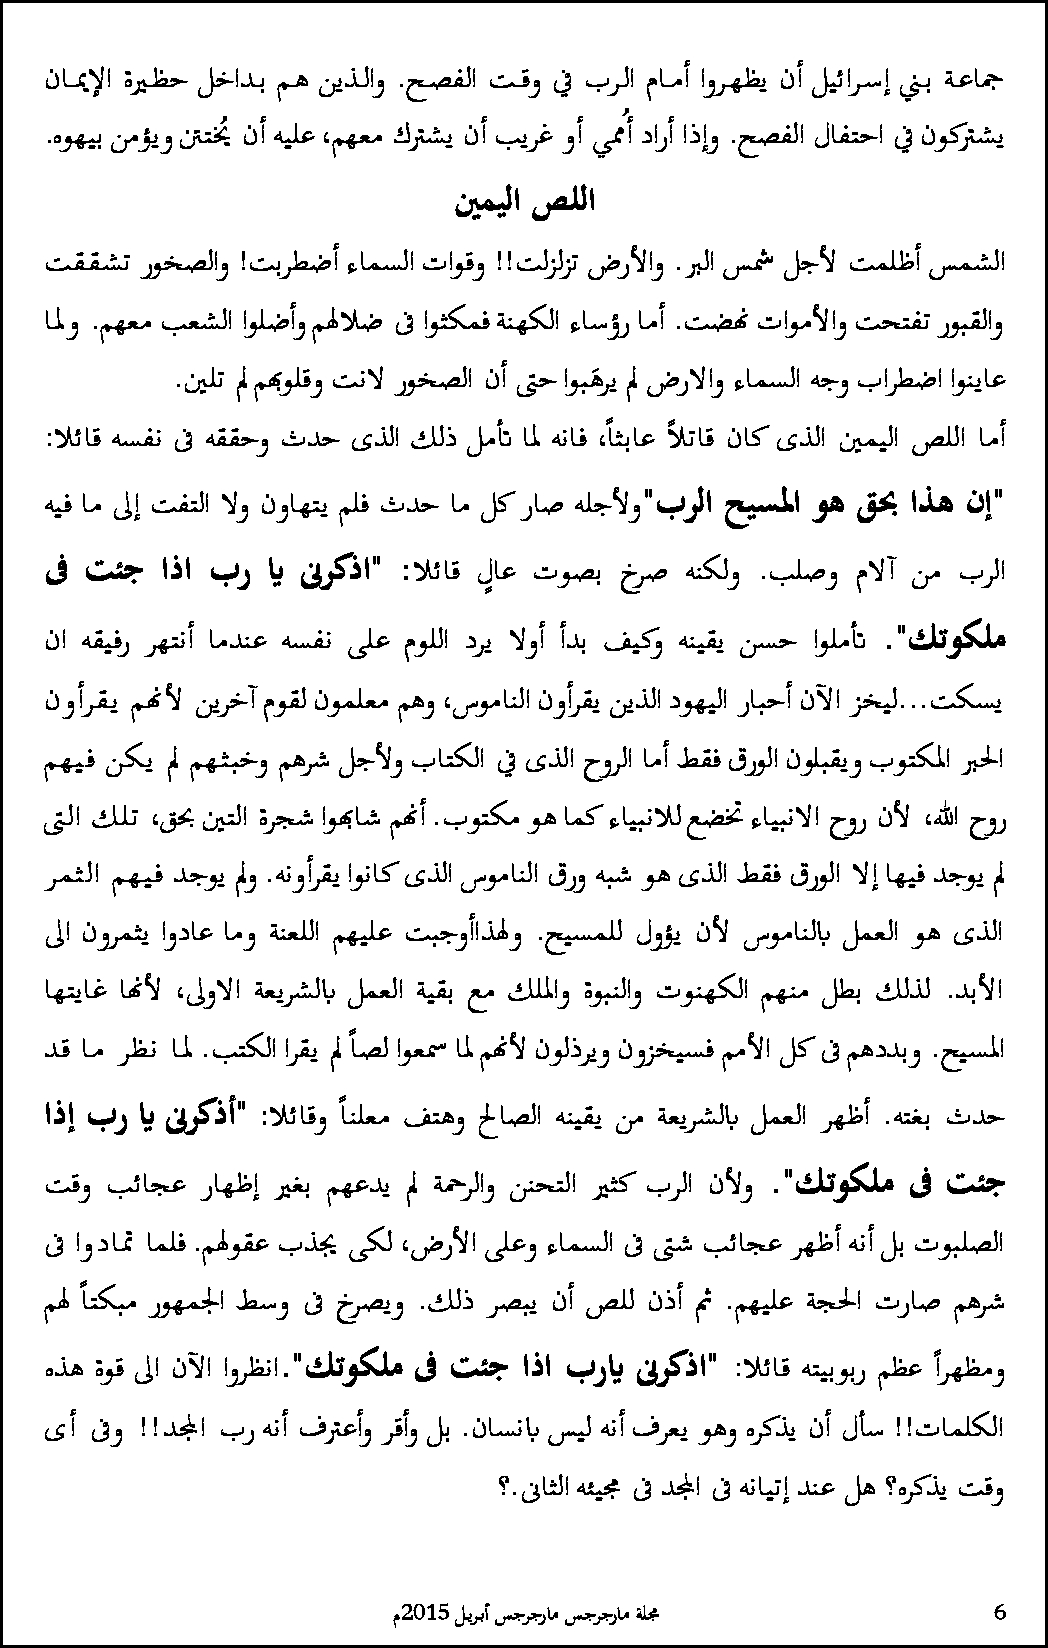 جماعة بني إسرائيل أن يظهروا أمام الرب في وقت الفصح. والذين هم بداخل حظيرة الإيمان
يشتركون في احتفال الفصح. وإذا أراد أُممي أو غريب أن يشترك معهم، عليه أن يُختتن ويؤمن بيهوه.
اللص اليمين
الشمس أظلمت لأجل شمس البر. والأرض تزلزلت!! وقوات السماء أضطربت! والصخور تشققت
والقبور تفتحت والأموات نهضت. أما رؤساء الكهنة فمكثوا فى ضلالهم وأضلوا الشعب معهم. ولما
عاينوا اضطراب وجه السماء والارض لم يرهَبوا حتى أن الصخور لانت وقلوبهم لم تلين.
أما اللص اليمين الذى كان قاتلاً عابثاً، فانه لما تأمل ذلك الذى حدث وحققه فى نفسه قائلا:
"إن هذا بحق هو المسيح الرب"ولأجله صار كل ما حدث فلم يتهاون ولا التفت إلى ما فيه
الرب من آلام وصلب. ولكنه صرخ بصوت عالٍ قائلا: "اذكرنى يا رب اذا جئت فى
ملكوتك". تأملوا حسن يقينه وكيف بدأ أولا يرد اللوم على نفسه عندما أنتهر رفيقه ان
يسكت...ليخز الآن أحبار اليهود الذين يقرأون الناموس، وهم معلمون لقوم آخرين لأنهم يقرأون
الحبر المكتوب ويقبلون الورق فقط أما الروح الذى في الكتاب ولأجل شرهم وخبثهم لم يكن فيهم
روح الله، لأن روح الانبياء تخضع للانبياء كما هو مكتوب. أنهم شابهوا شجرة التين بحق، تلك التى
لم يوجد فيها إلا الورق فقط الذى هو شبه ورق الناموس الذى كانوا يقرأونه. ولم يوجد فيهم الثمر
الذى هو العمل بالناموس لأن يؤول للمسيح. ولهذاأوجبت عليهم اللعنة وما عادوا يثمرون الى
الأبد. لذلك بطل منهم الكهنوت والنبوة والملك مع بقية العمل بالشريعة الاولى، لأنها غايتها
المسيح. وبددهم فى كل الأمم فسيخزون ويرذلون لأنهم لما سمعوا لصاً لم يقرا الكتب. لما نظر ما قد
حدث بغته. أظهر العمل بالشريعة من يقينه الصالح وهتف معلناً وقائلا: "أذكرنى يا رب إذا
جئت فى ملكوتك". ولأن الرب كثير التحنن والرحمة لم يدعهم بغير إظهار عجائب وقت
الصلبوت بل أنه أظهر عجائب شتى فى السماء وعلى الأرض، لكى يجذب عقولهم. فلما تمادوا فى
شرهم صارت الحجة عليهم. ثم أذن للص أن يبصر ذلك. ويصرخ فى وسط الجمهور مبكتاً لهم
ومظهراً عظم ربوبيته قائلا: "اذكرنى يارب اذا جئت فى ملكوتك".انظروا الآن الى قوة هذه
الكلمات!! سأل أن يذكره وهو يعرف أنه ليس بانسان. بل وأقر وأعترف أنه رب المجد!! وفى أى
وقت يذكره؟ هل عند إتيانه فى المجد فى مجيئه الثانى.؟
6 مجلة مارجرجس مارجرجس أبريل 2015م